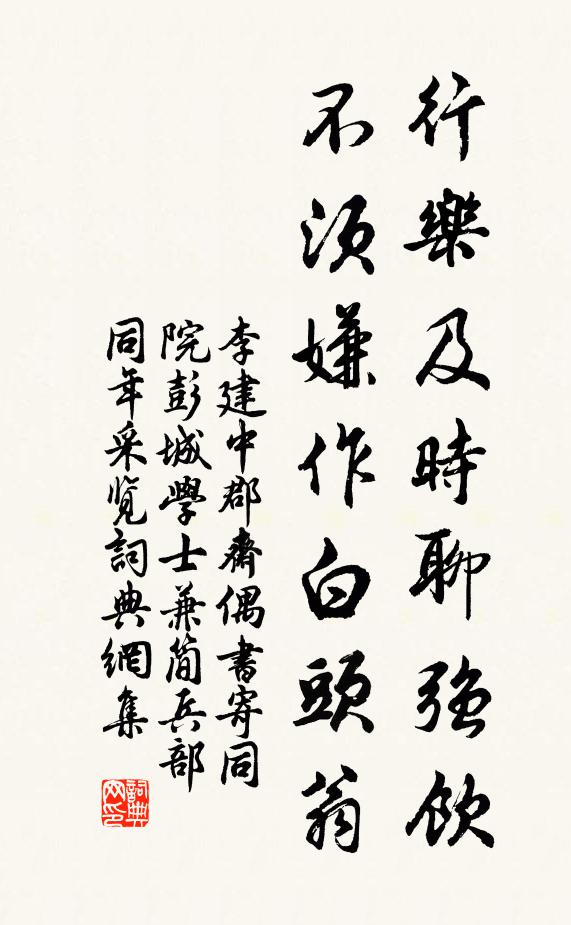 行樂及時聊強飲
不須嫌作白頭翁
李建中郡齋偶書寄同
院彭城學士兼簡兵部
同年采覽詞典網集
詞典
网印